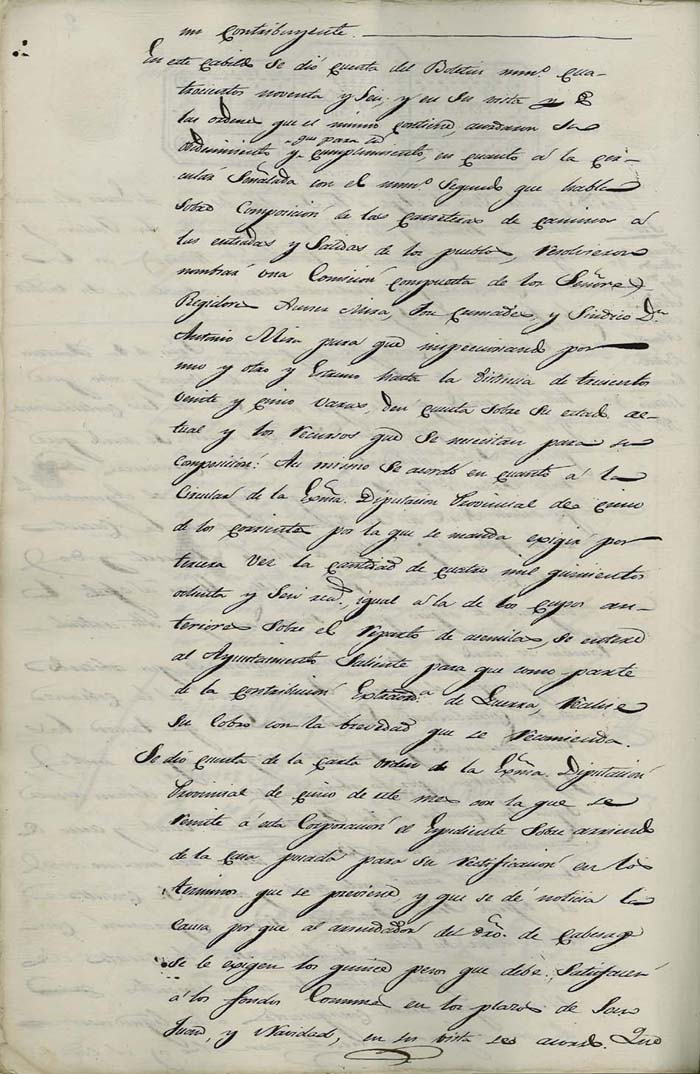 un contribuyente.
En este Cabildo se dió cuenta del Boletin numº. cua-
trocientos noventa y Seis, y en su vista y de
las ordenes que el mismo contiene, acordaron su
obedecimiento y cumplimiento, en cuanto á la Cir-
cular Señalada con el numº Segundo que habla
Sobre Composición de las carreteras de caminos á
las entradas y Salidas de los pueblos,
nombrar una Comisión compuesta de los Señores
Regidores Mira, y Sindico Dn
Antonio Mira para que inspeccionando por
uno y otro y Estremo hasta la distancia de trescientos
veinte y cinco varas, den cuenta sobre su estado ac-
tual y los recursos que se necesitan para su
composición: Asi mismo se acordó en cuanto á la
Circular de la Exma. Diputacion Provincial de cinco
de los corrientes por la que se manda exigir por
tercera vez la cantidad de cuatro mil quinientos
ochenta y Seis reas., igual á la de los cupos an-
teriores Sobre el reparto de asemilas, se entere
al Ayuntamiento Saliente para que como parte
de la contribución Extraordª de Guerra, realise
su Cobro con la brevedad que se recomienda.
Se dio cuenta de la carta orden de la Exma. Diputación
Provincial de cinco de este mes con la que se
remite á esta Corporación el Espediente Sobre arriendo
de la Casa posada para su rectificación en los
terminos que se previene, y que se dé noticia la
causa por que al arrendador del dro. de Cabesage
se le exigen los quince pesos que debe Satisfacer
á los fondos Comunes en los plazos de San
Juan, y Navidad, en su vista se acordo. Que